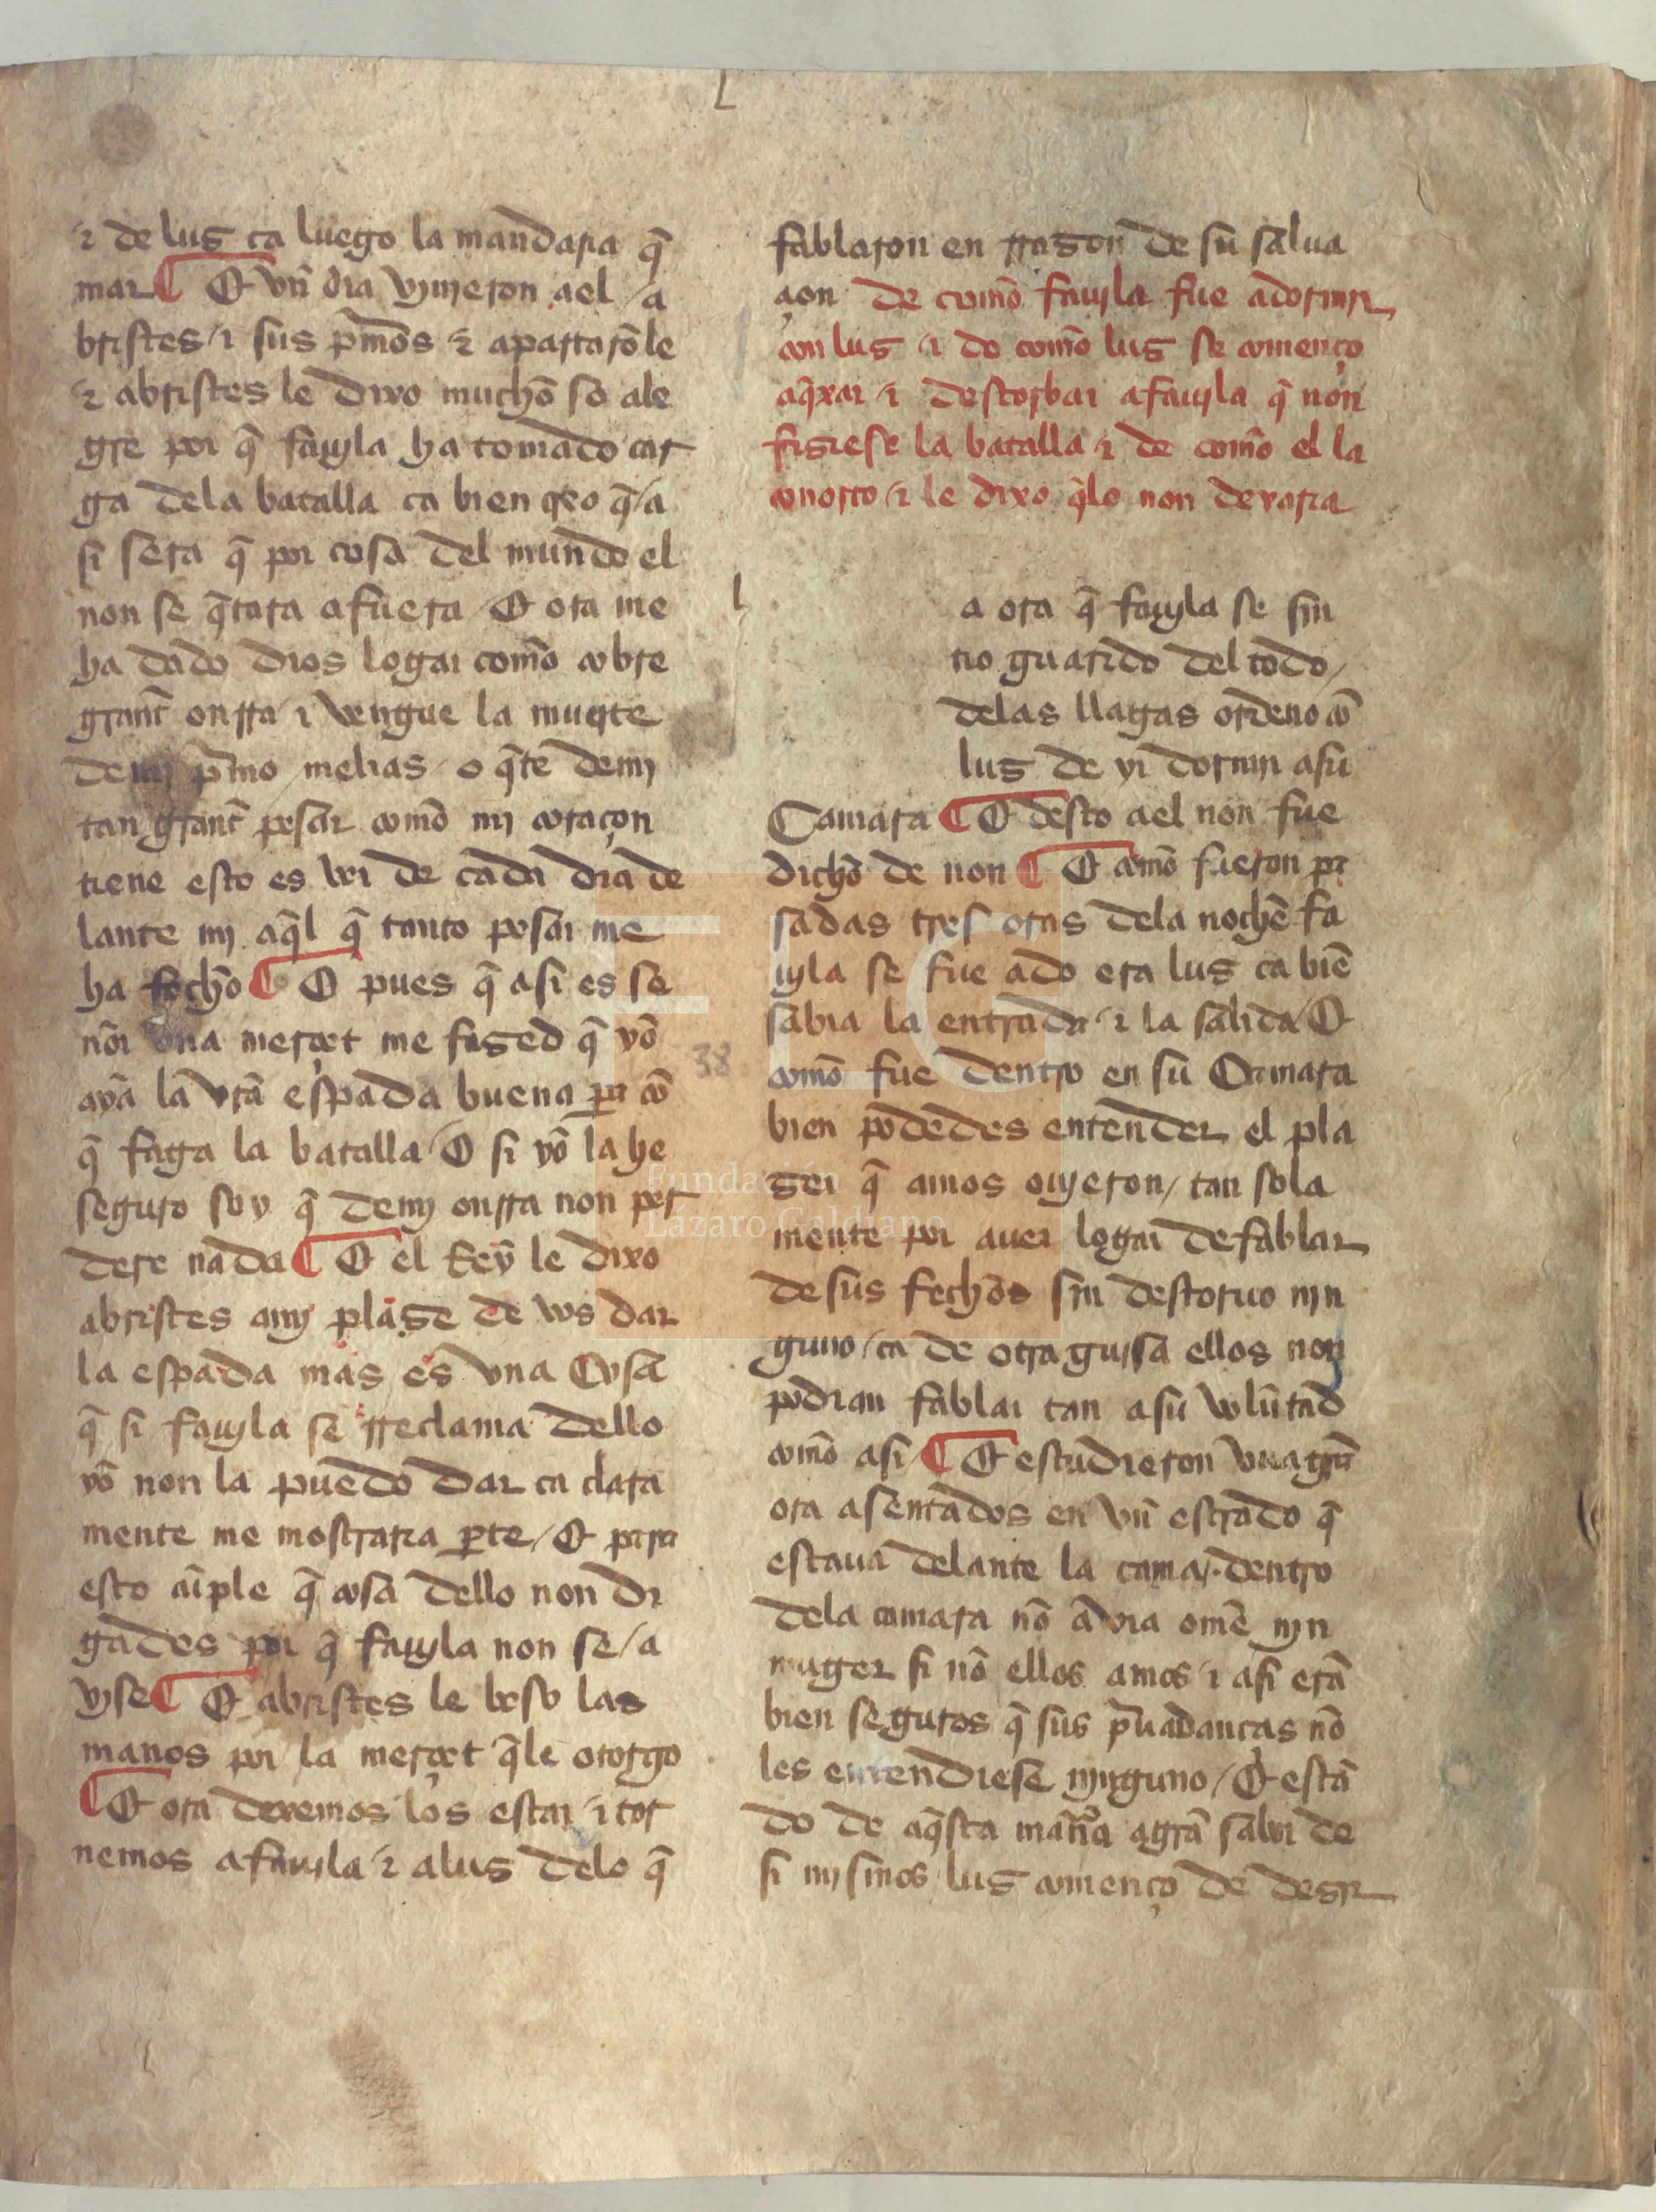 L
⁊ de luz ca luego la mandara q̃
mar ¶ Et vn̄ dia vjnjeron ael /a
bristes / ⁊ sus p̃mos ⁊ apartarõle
⁊ abristes le dixo mucho so ale
gre por q̃ fauyla ha tomado car
ga dela batalla ca bien creo q̃/a
si sera q̃ por cosa del mundo el
non se q̃tara afuera / Et ora me
ha dado dios logar como cobre
grant onrra / ⁊ vengue la muerte
demj p̃mo melias / o q̃te demj
tan grant pesar como mj coraçon
tiene esto es ver de cada dia de
lante mj aq̃l q̃ tanto pesar me
ha fecho ¶ O pues q̃ asi es se
nor vna merçet me fazed q̃ yo
aya la vr̃a espada buena pa cõ
q̃ faga la batalla / O si yo la he
seguro soy q̃ demj onrra non per
dere nada ¶ Et el Rey le dixo
abristes amj plaze de vos dar
la espada mas es vna Cosa
q̃ si fauyla se rreclama dello
yo non la puedo dar ca clara
mente me mostraria p̱te / Et para
esto cũple q̃ cosa dello non di
gades por q̃ fauyla non se /a
vjse ¶ Et abristes le beso las
manos por la merçet q̃le otorgo
¶ Et ora dexemos los estar / ⁊ tor
nemos afauyla / ⁊ aluz delo q̃
fablaron en rrazon de su salua
çion de como fauyla fue adormir
con luz / ⁊ de como luz se començo
aq̃xar / ⁊ destorbar afauyla q̃ non
fiziese la batalla / ⁊ de como el la
conorto / ⁊ le dixo q̃lo non dexaria
l
a ora q̃ fauyla se sin
tio guarido del todo /
delas llagas ordeno cõ
luz de yr dormir asu
Camara ¶ Et desto ael non fue
dicho de non ¶ Et como fueron pa
sadas tres oras dela noche fa
uyla se fue ado era luz ca biẽ
sabia la entrada / ⁊ la salida / Et
como fue dentro en su Camara
bien podedes entender el pla
zer q̃ amos oujeron / tan sola
mente por auer logar defablar
desus fechos sin destoruo njn
guno / ca de otra guysa ellos non
podrian fablar tan asu volũtad
como asi ¶ Et estudieron vna grã
ora asentados en vn̄ estrado q̃
estaua delante la cama / dentro
dela camara nõ a via omẽ njn
muger si nõ ellos amos / ⁊ asi erã
bien seguros q̃ sus p̃uadanças nõ
les entendiese njnguno / Et estã
do de aq̃sta manera agrã sabor de
si mjsmos luz començo de dezir
38
FLG
Fundación
Lázaro Galdiano